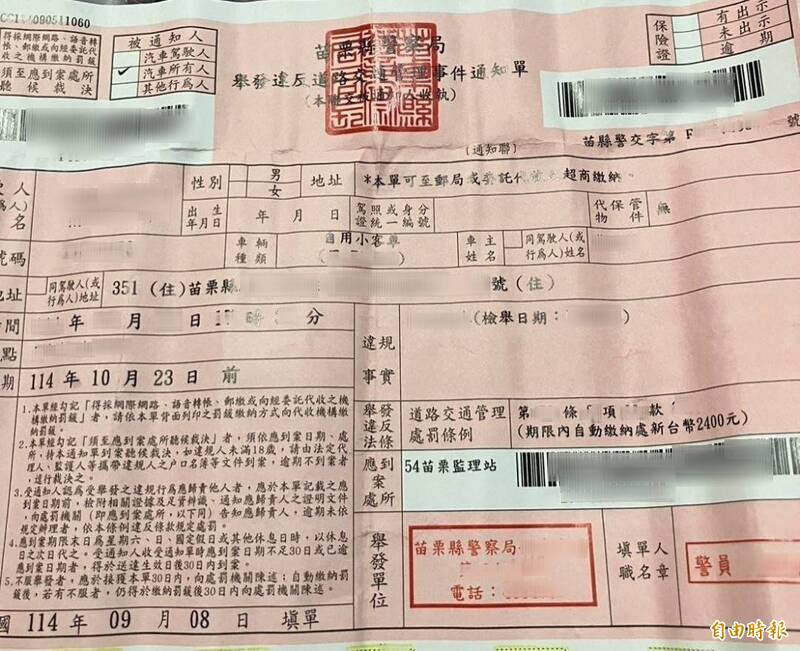 得採網際網路、語音轉
帳、郵繳或向經委託代
收之機構繳納罰鍰
須至應到案處所
聽候裁決
被通知人
汽車駕駛人
✓ 汽車所有人
其他行為人
苗栗縣警察局
舉發違反道路交通管理事件通知單
(通知聯)
保險證
有出示
未出示
逾期
苗縣警交字第 F
號
性別
男
女
地址
*本單可至郵局或委託代 超商繳納
出生
年月日
年 月 日
駕照或身分
證統一編號
代保管
物件
無
號碼
車輛
種類
自用小客車
車主
姓名
同駕駛人(或
行為人)姓名
地址
同駕駛人(或
行為人)地址
351 (住) 苗栗縣
號 (住)
年 月 日
分
(檢舉日期:
)
違規
事實
期
114 年 10 月 23 日 前
1.本單經勾記「得採網際網路、語音轉帳、郵繳或向經委託代收之機
構繳納罰鍰」者,請依本單背面列印之罰鍰繳納方式向代收機構繳
納罰鍰。
2.本單經勾記「須至應到案處所聽候裁決」者,須依應到案日期、處
所,持本通知單到案聽候裁決,如違規人未滿18歲,請由法定代
理人、監護人等攜帶違規人之戶口名簿等文件到案,逾期不到案者
,逕行裁決之。
3.受通知人認為受舉發之違規行為應歸責他人者,應於本單記載之應
到案日期前,檢附相關證據及足資辨識、通知應歸責人之證明文件
,向處罰機關(即應到案處所,以下同)告知應歸責人,逾期未依
規定辦理者,依本條例違反條款規定處罰。
4.應到案期限末日為星期六、日、國定假日或其他休息日時,以休息
日之次日代之。受通知人收受通知單時應到案日期不足30日或已逾
應到案日期者,得於送達生效日後30日內到案。
5.不服舉發者,應於接獲本單30日內,向處罰機關陳述;自動繳納罰
鍰後,若有不服者,仍得於繳納罰鍰後30日內向處罰機關陳述。
舉發
違反
法條
道路交通管理
處罰條例
第 條 項 款
(期限內自動繳納處新台幣2400元)
應到案處所
54苗栗監理站
舉發單位
苗栗縣警察局
電話:
填單人
職名章
警員
國 114 年 09 月 08 日 填單
自由時報